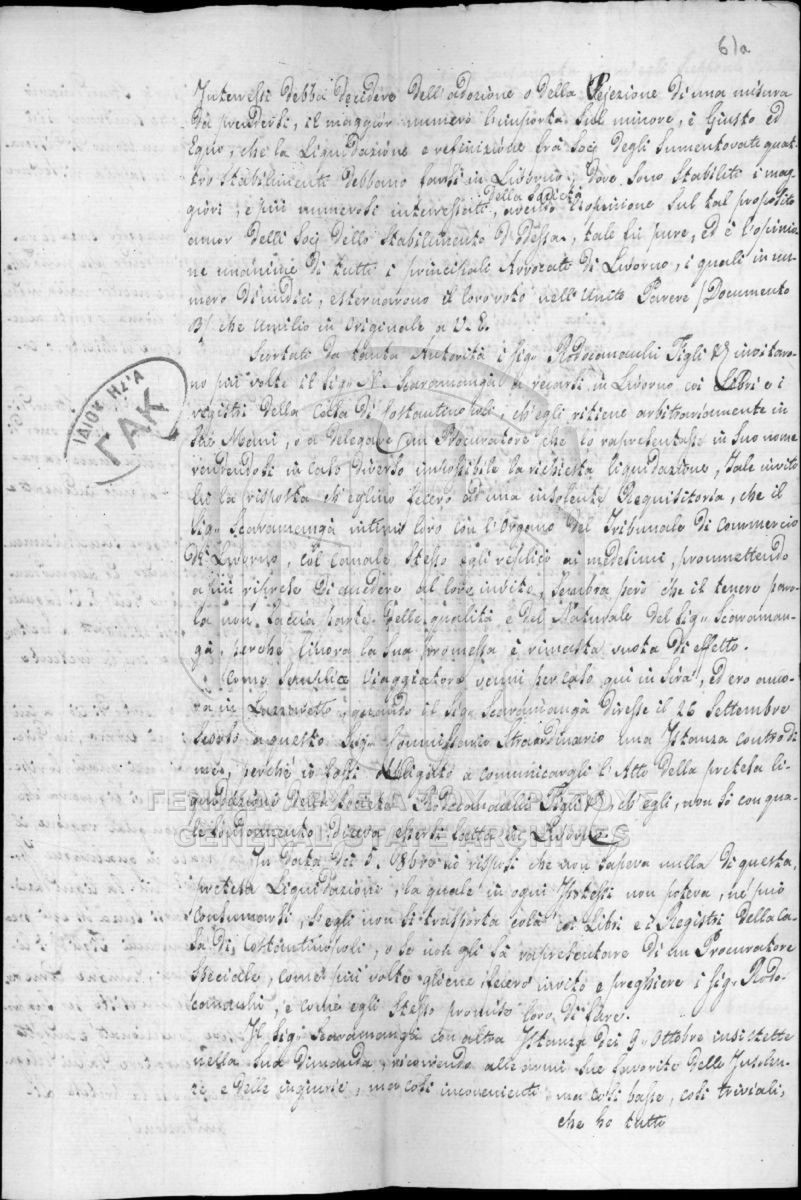 61a
Interessi debba decidere dell'adozione o della Rejezione di una misura
da prendersi, il maggior numero l'importa sul minore, è Giusto ed
Equo, che la Liquidazione e refinizione frà Socj degli Sumentovati quat-
tro stabilimenti debbano farsi in Livorno, dove sono stabiliti i mag-
giori, e più numerosi interessati della Società, avendo l'opinione sul tal proposito
ancor delli Socj dello Stabilimento d'Odessa, tale fù pure, ed è l'opinio-
ne unanime di tutti i principali Avvocati di Livorno, i quali in nu-
mero di undici, esternarono il loro voto nell'Unito Parere / Documento
B / che umilio in originale a V. E.
Scortati da tanta Autorità i Sigri Rodocanachi Figli & C invitaro-
no più volte il Sigr N. Scaramangà a recarsi in Livorno coi Libri e i
registri della Casa di Costantinopoli, ch'egli ritiene arbitrariamente in
sue Mani, o a delegare un Procuratore che lo rapresentasse in suo nome
rendendosi in caso diverso impossibile la richiesta liquidazione, Tale invito
fu la risposta ch'eglino fecero ad una insolente Requisitoria, che il
Sigr Scaramangà intimò loro con l'Organo del Tribunale di Commercio
di Livorno, Col Canale Stesso egli replicò ai medesimi, promettendo
a più riprese di anedere al loro invito, Sembra però che il tenere paro-
la non faccia parte delle qualità e del Naturale del Sigr Scaraman-
gà, perchè finora la Sua promessa è rimasta vuota di effetto.
Come Semplice Viaggiatore venni per caso qui in Sira, ed ero anco-
ra in Lazzaretto, quando il Sigr Scaramangà diresse il 26 Settembre
scorso a questo Sigr Commissario Straordinario una Istanza contro di
me, perchè io fossi obbligato a comunicargli l'Atto della pretesa li-
quidazione della Società Rodocanachi Figli & C ch'egli, non sò con qua-
le fondamento diceva essersi fatta in Livorno.
In data dei 5. 8bre io risposi che non sapeva nulla di questa,
pretesa Liquidazione, la quale in ogni Ipotesi non poteva, nè può
consumarsi, s'egli non si trasporta colà coi Libri e i Registri della Ca-
sa di Costantinopoli, o se non gli fà rapresentare di un Procuratore
speciale, come più volte gliene fecero invito e preghiere i Sigri Rodo-
canachi, e come egli stesso promise loro di fare.
Il Sigr Scaramangà con altra Istanza dei 9 Ottobre insistette
nella sua dimanda, ricorrendo alle armi sue favorite delle Insolen-
ze, e delle ingiurie, ma così inconvenienti ma così basse, così triviali,
che ho tutto
ΙΔΙΟΚΤΗΣΙΑ
ΓΑΚ
ΓΕΝΙΚΑ ΑΡΧΕΙΑ ΤΟΥ ΚΡΑΤΟΥΣ
GENERAL STATE ARCHIVES